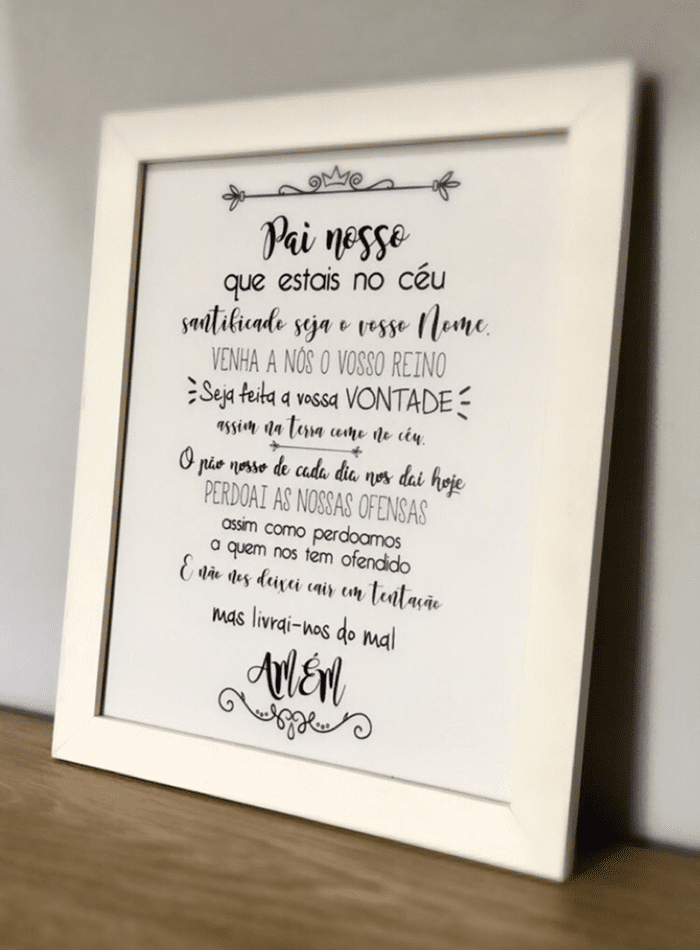 Pai nosso
que estais no céu
santificado seja o vosso Nome.
VENHA A NÓS O VOSSO REINO
Seja feita a vossa VONTADE
assim na terra como no céu.
O pão nosso de cada dia nos dai hoje
PERDOAI AS NOSSAS OFENSAS
assim como perdoamos
a quem nos tem ofendido
E não nos deixei cair em tentação
mas livrai-nos do mal
AMÉM